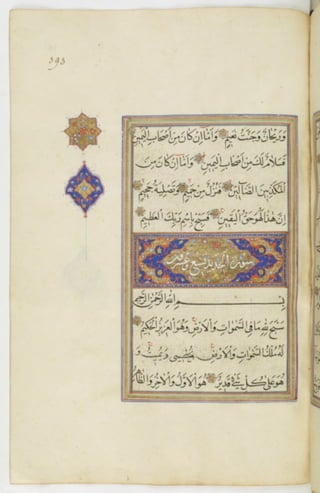 393
وَرَيْحَانٌ وَجَنَّتُ نَعِيمٍ وَأَمَّا إِن كَانَ مِنْ أَصْحَابِ الْيَمِينِ
فَسَلَامٌ لَكَ مِنْ أَصْحَابِ الْيَمِينِ وَأَمَّا إِن كَانَ مِنَ
الْمُكَذِّبِينَ الضَّالِّينَ فَنُزُلٌ مِنْ حَمِيمٍ وَتَصْلِيَةُ جَحِيمٍ
إِنَّ هَذَا لَهُوَ حَقُّ الْيَقِينِ فَسَبِّحْ بِاسْمِ رَبِّكَ الْعَظِيمِ
سورة الحديد
بِسْمِ اللَّهِ الرَّحْمَنِ الرَّحِيمِ
سَبَّحَ لِلَّهِ مَا فِي السَّمَوَاتِ وَالْأَرْضِ وَهُوَ الْعَزِيزُ الْحَكِيمُ
لَهُ مُلْكُ السَّمَوَاتِ وَالْأَرْضِ يُحْيِي وَيُمِيتُ وَ
هُوَ عَلَى كُلِّ شَيْءٍ قَدِيرٌ هُوَ الْأَوَّلُ وَالْآخِرُ وَالظَّاهِرُ